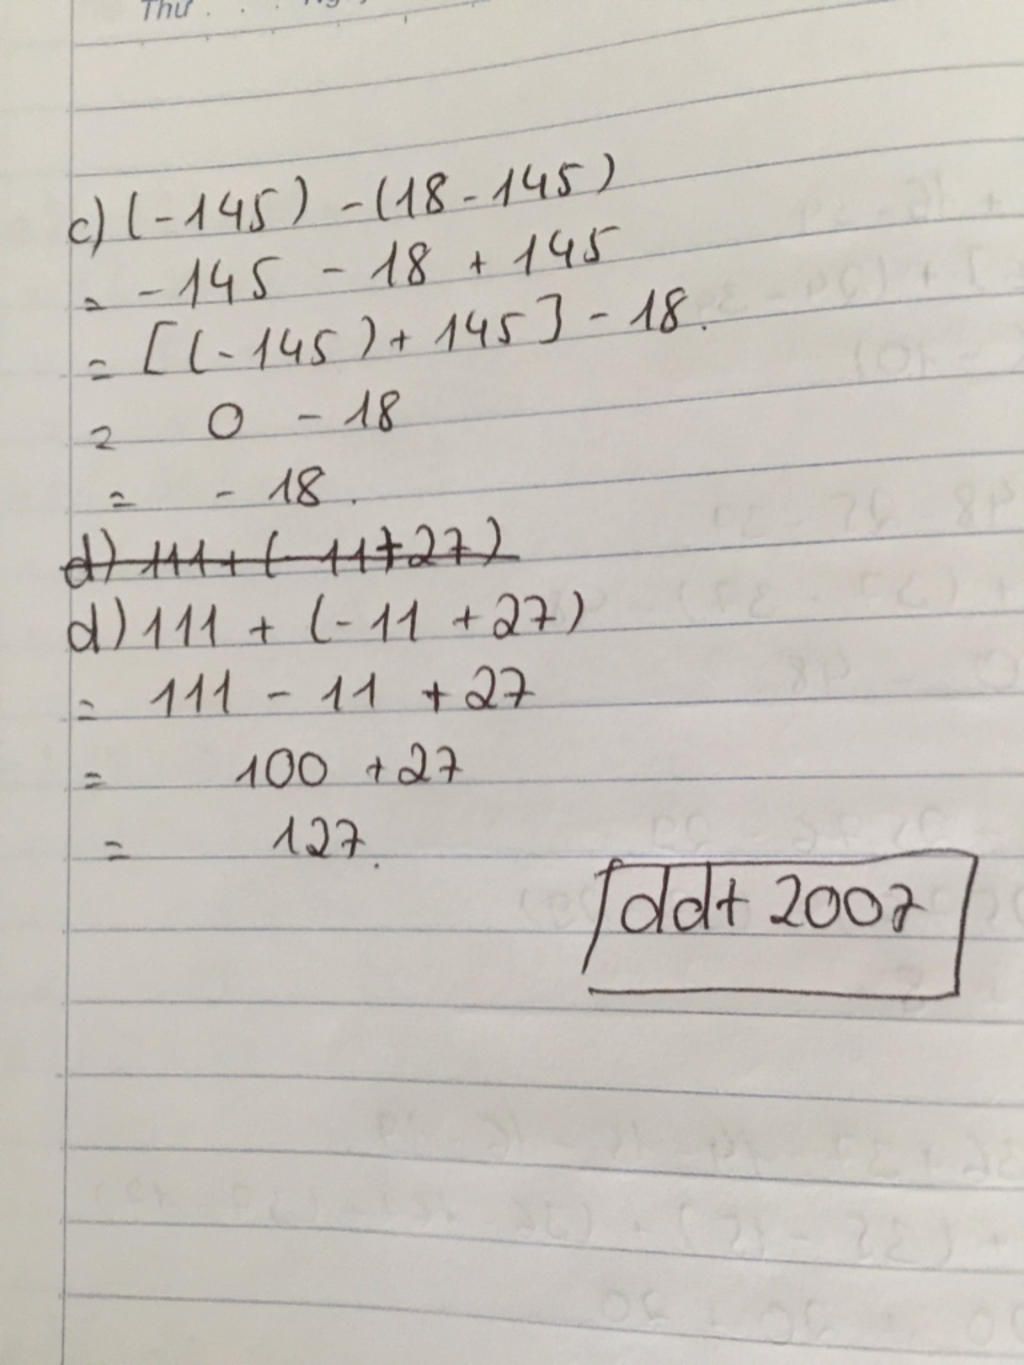 Thứ
c) (-145) - (18 - 145)
= -145 - 18 + 145
= [(-145) + 145] - 18.
= 0 - 18
= - 18.
d) 111 + (-11+27)
d) 111 + (-11 + 27)
= 111 - 11 + 27
= 100 + 27
= 127.
ddt 2007